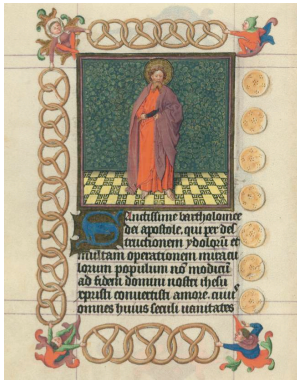 Sanctissime bartholomee
dei apostole, qui per des
tructionem ydolorum et
multam operationem miracu
lorum populum no modicū
ad fidem domini nostri ihesu
xpristi conuertisti amore. cuius
omnes huius seculi uanitates